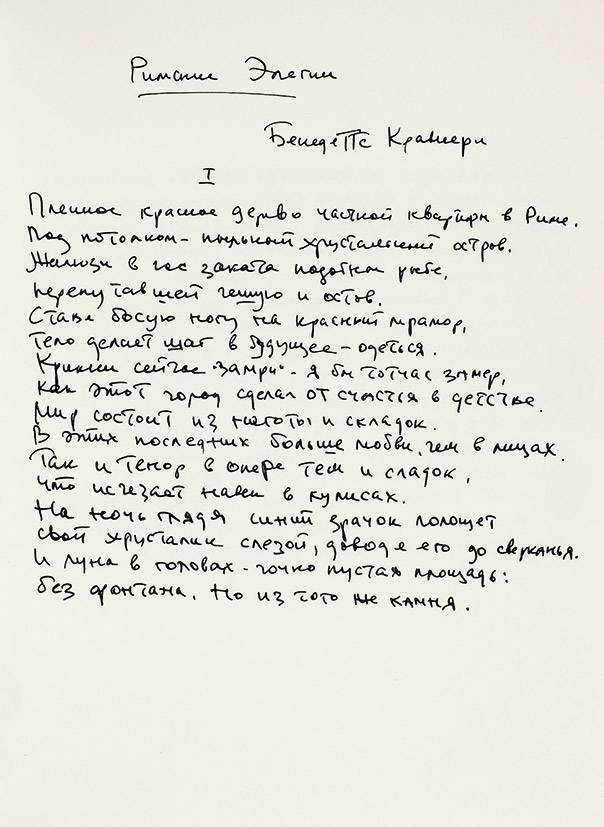 Римские Элегии
Бенедетте Кравиери
I
Пленное красное дерево частной квартиры в Риме.
Под потолком - пыльный хрустальный остров.
Жалюзи в час заката подобны рыбе,
перепутавшей чешую и остов.
Ставя босую ногу на красный мрамор,
тело делает шаг в будущее - одеться.
Крикни сейчас "замри" - я бы тотчас замер,
как этот город сделал от счастья в детстве.
Мир состоит из наготы и складок.
В этих последних больше любви, чем в лицах.
Так и тенор в опере тем и сладок,
что исчезает навек в кулисах.
На ночь глядя синий зрачок полощет
свой хрусталик слезой, доводя его до сверканья.
И луна в головах - точно пустая площадь:
без фонтана. Но из того же камня.